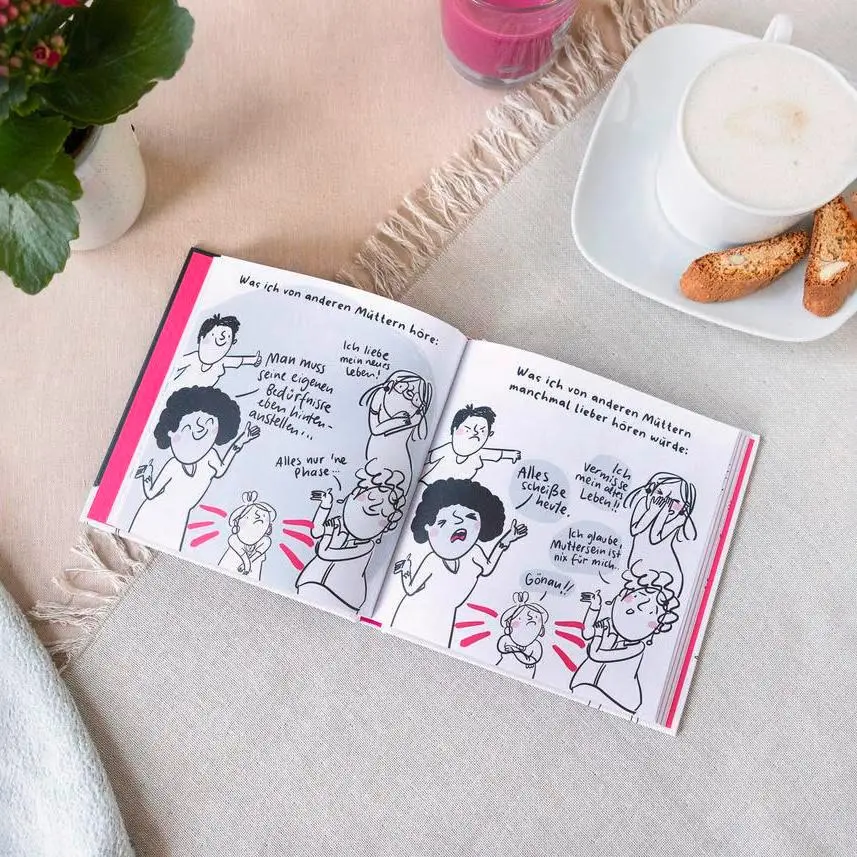 Was ich von anderen Müttern höre:
Ich liebe
mein neues
Leben!
Man muss
seine eigenen
Bedürfnisse
eben hinten-
anstellen...
Alles nur 'ne
Phase...
Was ich von anderen Müttern
manchmal lieber hören würde:
Alles
scheiße
heute.
Ich
vermisse
mein altes
Leben!!
Ich glaube,
Muttersein ist
nix für mich.
Gönau!!